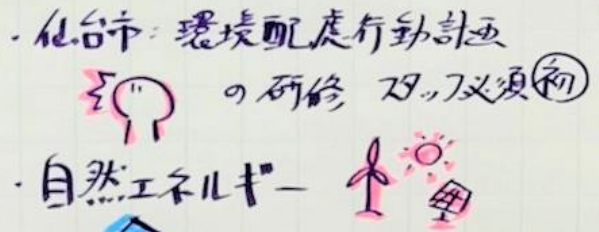 ・仙台市：環境配慮行動計画
の研修 スタッフ必須 初
・自然エネルギー